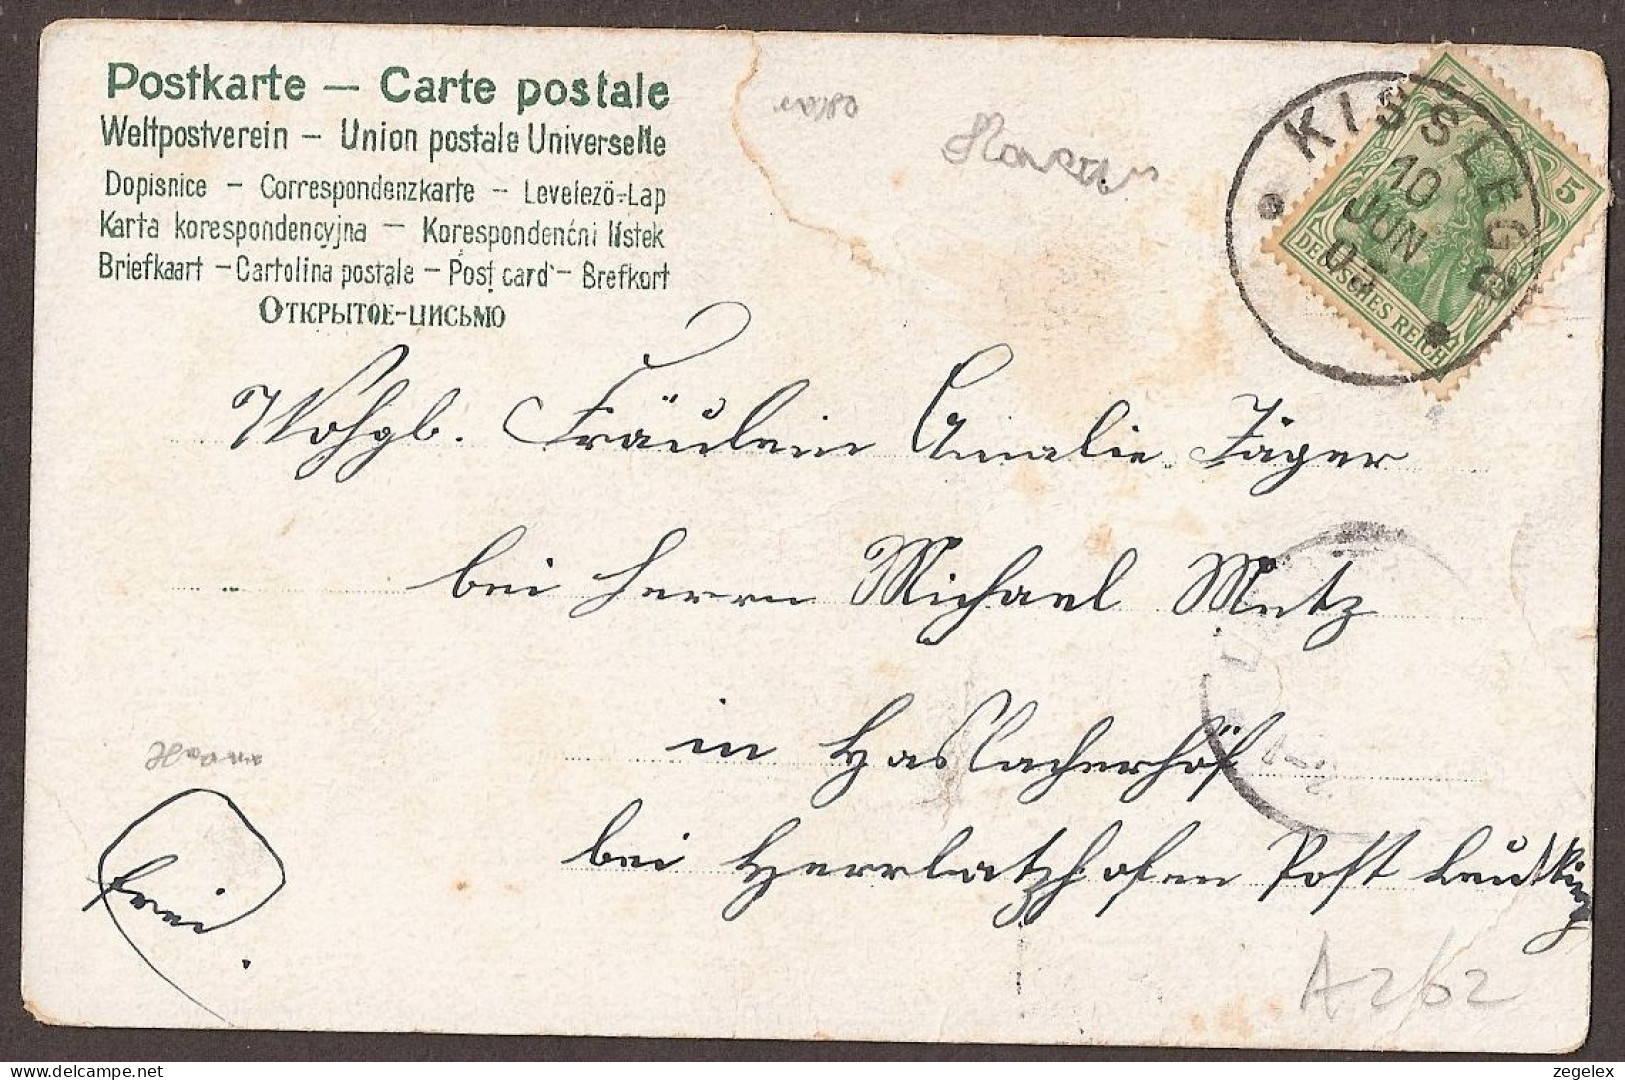 Postkarte – Carte postale
Weltpostverein – Union postale Universelle
Dopisnice – Correspondenzkarte – Levelező-Lap
Karta korespondencyjna – Korespondenční lístek
Briefkaart – Cartolina postale – Post card – Brefkort
Открытое-письмо
KISSLEGG
10
JUN
5
5
DEUTSCHES REICH
Wohgb. Fräulein Amalie Jäger
bei Herrn Michael Metz
in Haslacherhöf
bei Herrlatzhofen Post Leutkirg
frei.
A262
zegelex
www.delcampe.net